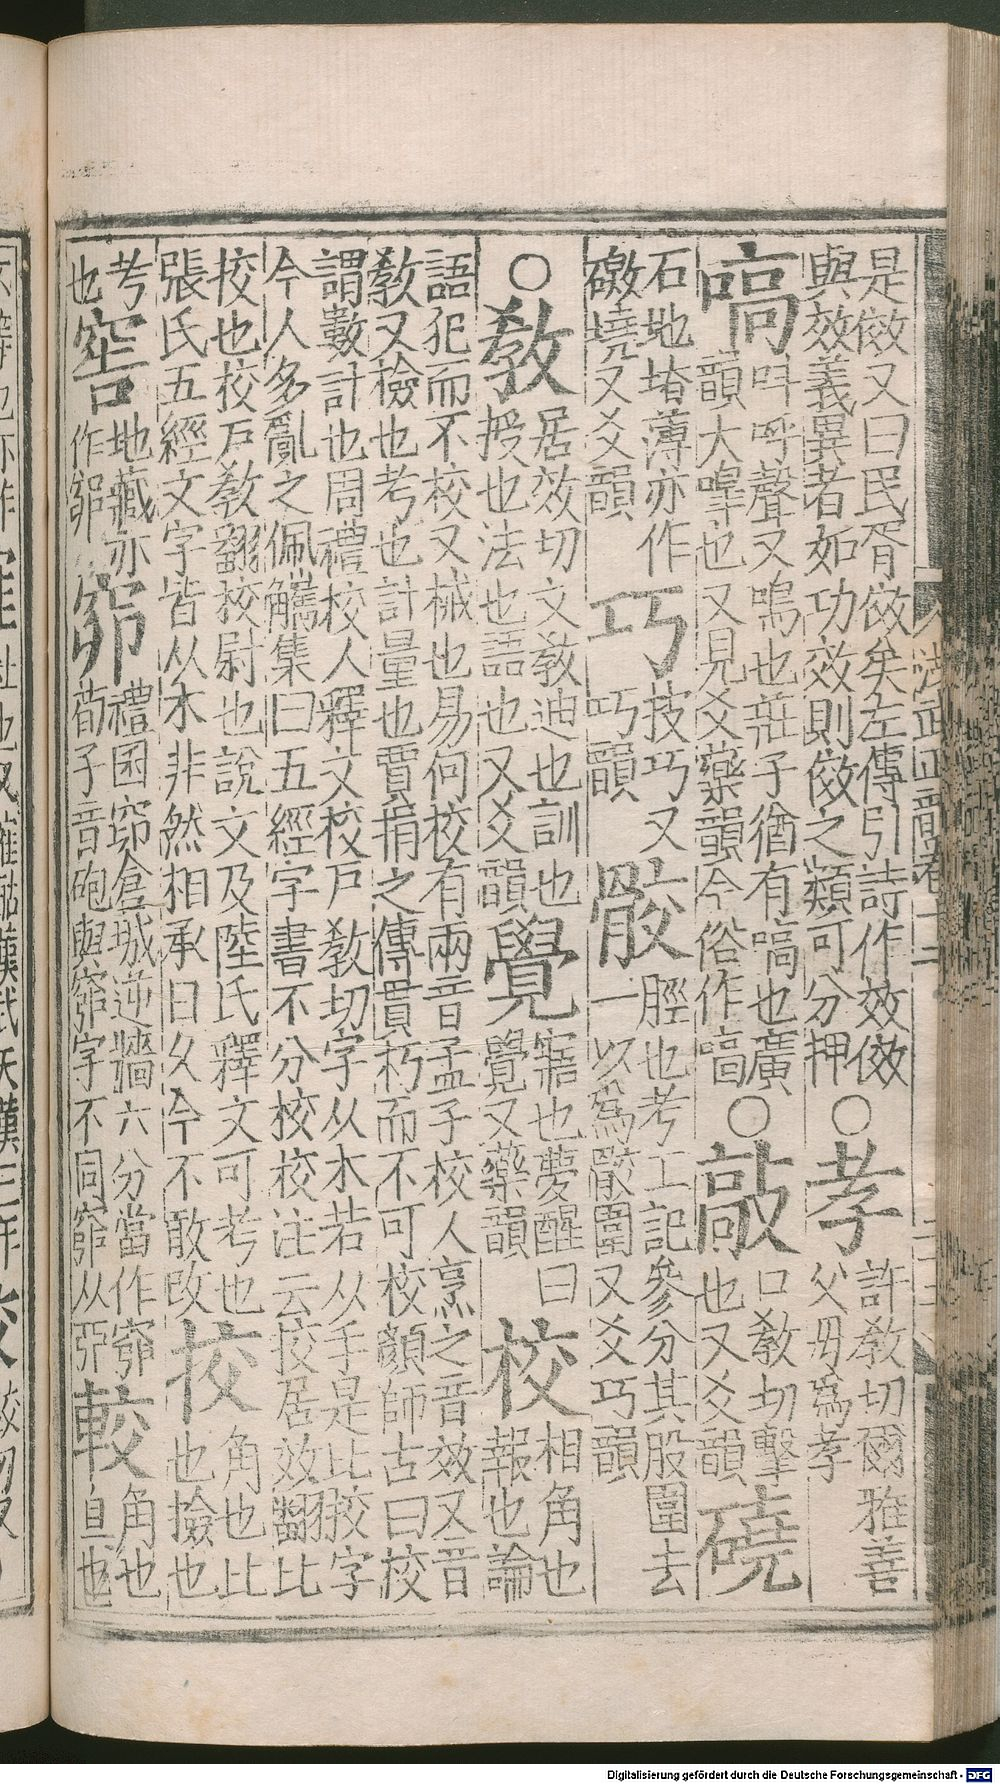 是傚又曰民胥傚矣左傳引詩作效傚
與效義異者如功效則傚之類可分押○孝許教切爾雅善
父母爲孝
嗃叫呼聲又嗚也莊子猶有嗃也廣
韻大嘷也又見爻藥韻今俗作○敲口教切擊
也又爻韻磽
石地塉薄亦作
墝又爻韻巧技巧又
巧韻骹脛也考工記參分其股圍去
一以爲骹圍又爻巧韻
○教居效切文教迪也訓也
授也法也語也又爻韻覺寤也夢醒曰
覺又藥韻校相角也
報也論
語犯而不校又械也易何校有兩音孟子校人烹之音效又音
教又檢也考也計量也賈捐之傳貫朽而不可校顏師古曰校
謂數計也周禮校人釋文校戶教切字从木若从手是比挍字
今人多亂之佩觿集曰五經字書不分校挍注云挍居效翻比
挍也校戶教翻校尉也說文及陸氏釋文可考也
張氏五經文字皆从木非然相承日久今不敢改挍角也比
也撿也
考
也窖地藏亦
作窌窌禮囷窌倉城逆牆六分當作窌
荀子音砲與奅字不同从較角也
直也
Digitalisierung gefördert durch die Deutsche Forschungsgemeinschaft - DFG